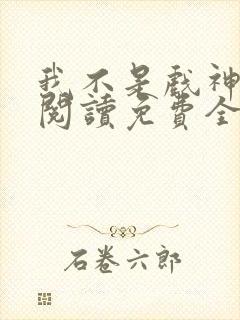 我不是戲神
閱讀免費全
石卷六郎